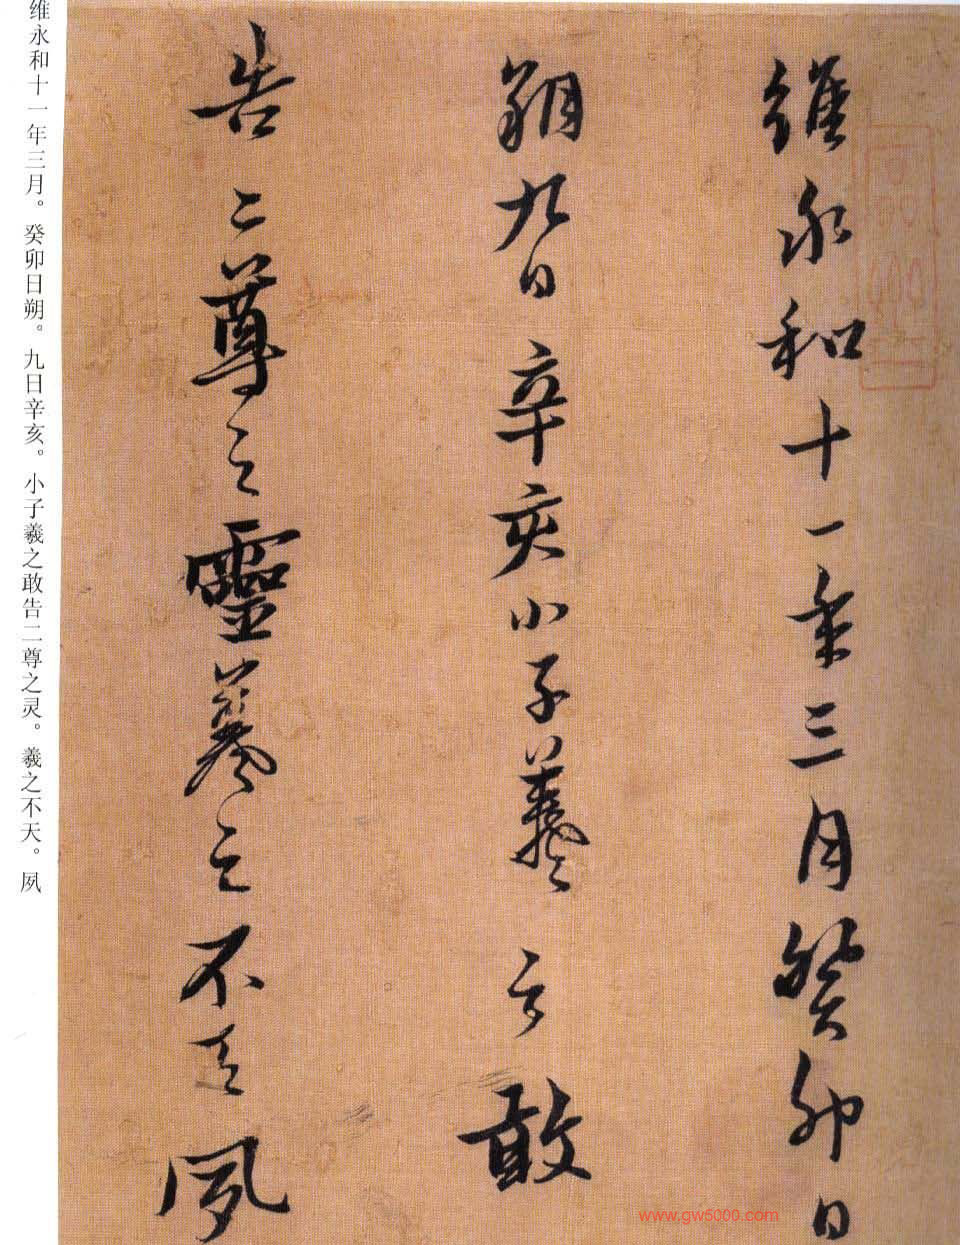 維永和十一年三月癸卯日
朔九日辛亥小子羲之敢
告二尊之靈羲之不天夙
维永和十一年三月。癸卯日朔。九日辛亥。小子羲之敢告二尊之灵。羲之不天。夙
www.gw5000.com